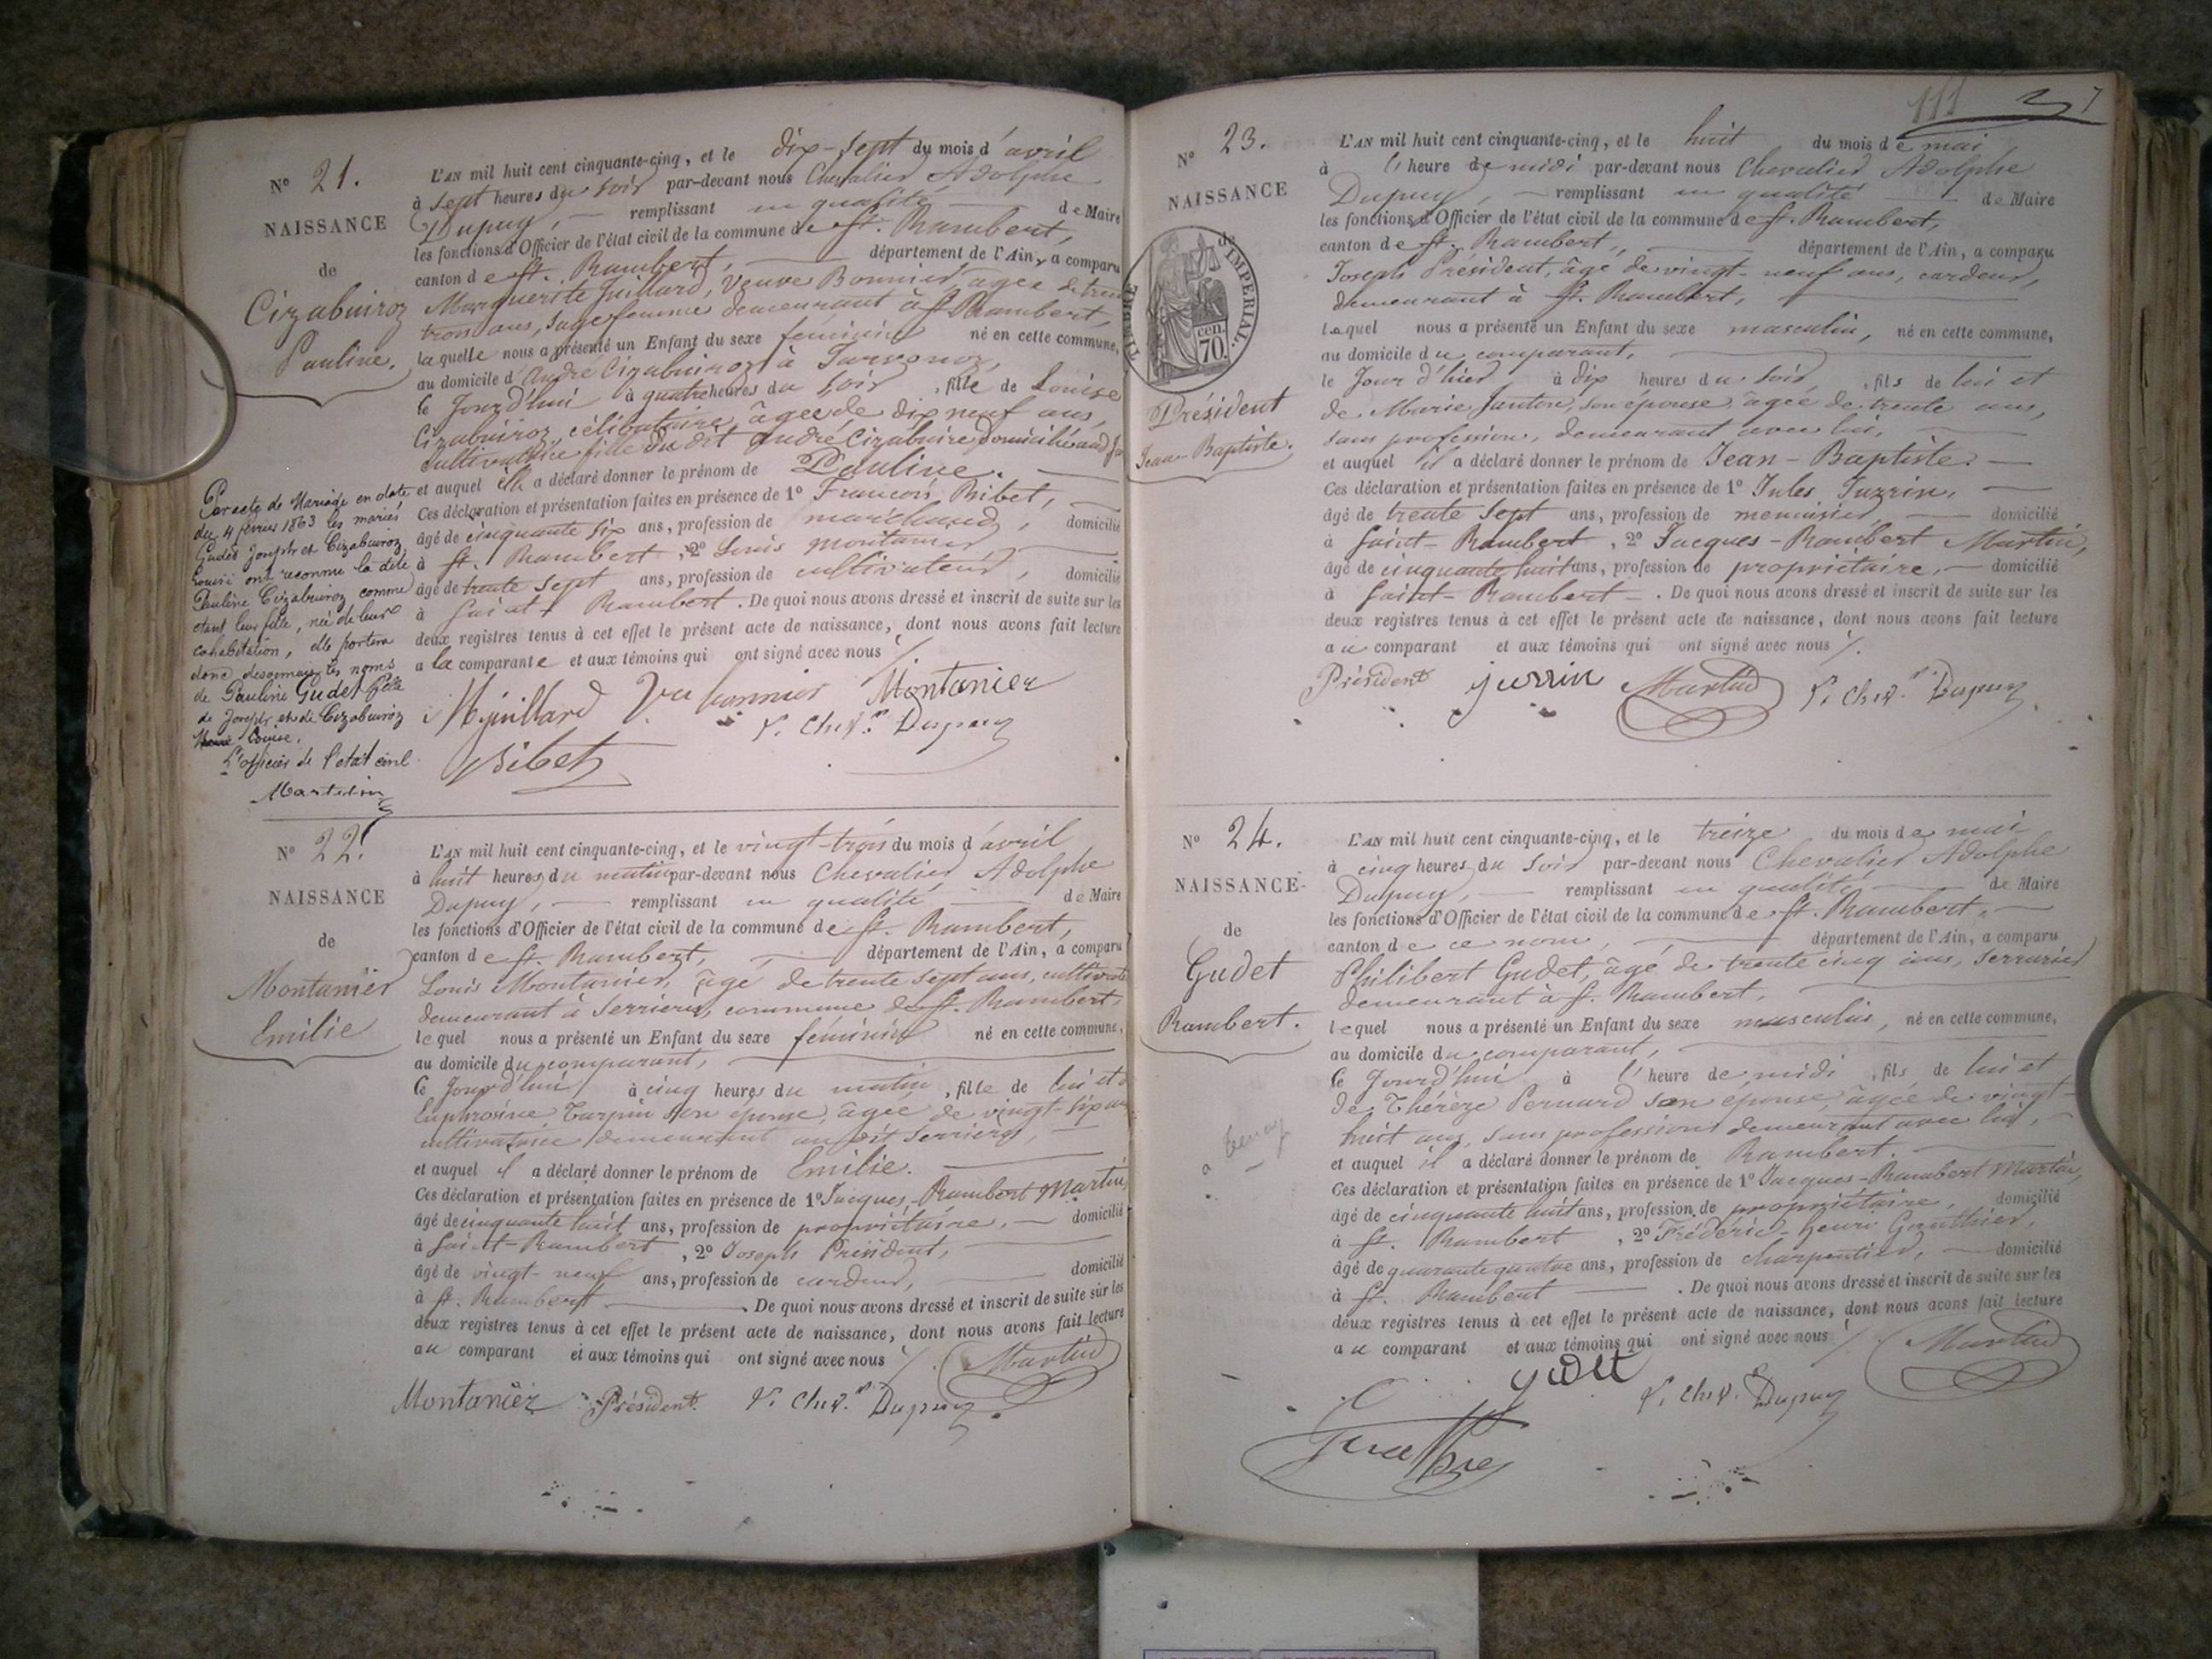 N° 21.
NAISSANCE
de
Cizabuiroz
Pauline.
L'AN mil huit cent cinquante-cinq, et le dix-sept du mois d'avril
à sept heures du soir par-devant nous Chevalier Adolphe
Dupuy, remplissant en qualité de Maire
les fonctions d'Officier de l'état civil de la commune de St. Rambert,
canton de St. Rambert, département de l'Ain, a comparu
Marguerite Juillard, Veuve Bonnier âgée de trente
trois ans, sage femme demeurant à St. Rambert,
laquelle nous a présenté un Enfant du sexe féminin né en cette commune,
au domicile d'André Cizabuiroz à
ce Jourd'hui à quatre heures du soir, fille de Louise
Cizabuiroz, célibataire, âgée de dix neuf ans,
cultivatrice fille du dit André Cizabuiroz domicilié
et auquel elle a déclaré donner le prénom de Pauline.
Ces déclaration et présentation faites en présence de 1° François Ribet,
âgé de cinquante six ans, profession de marchand, domicilié
à St. Rambert, 2° Louis Montanier
âgé de trente sept ans, profession de cultivateur, domicilié
à Saint-Rambert. De quoi nous avons dressé et inscrit de suite sur les
deux registres tenus à cet effet le présent acte de naissance, dont nous avons fait lecture
a la comparante et aux témoins qui ont signé avec nous /.
M juillard Ve bonnier Montanier
Ribet
P. Cher. Dupuy
Par acte de Mariage en date
du 4 février 1863 les mariés
Gudet Joseph et Cizabuiroz
Louise ont reconnu la dite
Pauline Cizabuiroz comme
étant leur fille, née de leur
cohabitation, elle portera
donc desormais les noms
de Pauline Gudet fille
de Joseph et de Cizabuiroz
Louise.
L'officier de l'etat civil
Martelin
N° 22.
NAISSANCE
de
Montanier
Emilie
L'AN mil huit cent cinquante-cinq, et le vingt-trois du mois d'avril
à huit heures du matin par-devant nous Chevalier Adolphe
Dupuy, remplissant en qualité de Maire
les fonctions d'Officier de l'état civil de la commune de St. Rambert,
canton de St. Rambert, département de l'Ain, a comparu
Louis Montanier, âgé de trente sept ans, cultivateur
demeurant à Serrières, commune de St. Rambert,
lequel nous a présenté un Enfant du sexe féminin né en cette commune,
au domicile du comparant,
ce Jourd'hui à cinq heures du matin, fille de lui et d'
Euphrosine Turpin son épouse, âgée de vingt-six ans
cultivatrice demeurant au dit Serrières,
et auquel il a déclaré donner le prénom de Emilie.
Ces déclaration et présentation faites en présence de 1° Jacques-Rambert Martin,
âgé de cinquante huit ans, profession de propriétaire, domicilié
à Saint-Rambert, 2° Joseph Président,
âgé de vingt-neuf ans, profession de cardeur, domicilié
à St. Rambert. De quoi nous avons dressé et inscrit de suite sur les
deux registres tenus à cet effet le présent acte de naissance, dont nous avons fait lecture
au comparant et aux témoins qui ont signé avec nous /. Martin
Montanier Président P. Cher. Dupuy
111
N° 23.
NAISSANCE
de
TIMBRE IMPERIAL.
70 cen.
Président
Jean-Baptiste.
L'AN mil huit cent cinquante-cinq, et le huit du mois de mai
à l'heure de midi par-devant nous Chevalier Adolphe
Dupuy, remplissant en qualité de Maire
les fonctions d'Officier de l'état civil de la commune de St. Rambert,
canton de St. Rambert, département de l'Ain, a comparu
Joseph Président, âgé de vingt-neuf ans, cardeur,
demeurant à St. Rambert,
lequel nous a présenté un Enfant du sexe masculin, né en cette commune,
au domicile du comparant,
le Jour d'hier à dix heures du soir, fils de lui et
de Marie son épouse âgée de trente ans,
sans profession, demeurant avec lui,
et auquel il a déclaré donner le prénom de Jean-Baptiste.
Ces déclaration et présentation faites en présence de 1° Jules Juzrin,
âgé de trente sept ans, profession de menuisier, domicilié
à Saint-Rambert, 2° Jacques-Rambert Martin,
âgé de cinquante huit ans, profession de propriétaire, domicilié
à Saint-Rambert. De quoi nous avons dressé et inscrit de suite sur les
deux registres tenus à cet effet le présent acte de naissance, dont nous avons fait lecture
au comparant et aux témoins qui ont signé avec nous /.
Président jurrin Martin P. Cher. Dupuy
N° 24.
NAISSANCE
de
Gudet
Rambert.
L'AN mil huit cent cinquante-cinq, et le treize du mois de mai
à cinq heures du soir par-devant nous Chevalier Adolphe
Dupuy, remplissant en qualité de Maire
les fonctions d'Officier de l'état civil de la commune de St. Rambert,
canton de ce nom, département de l'Ain, a comparu
Philibert Gudet, âgé de trente cinq ans, serrurier
demeurant à St. Rambert,
lequel nous a présenté un Enfant du sexe masculin, né en cette commune,
au domicile du comparant,
ce Jourd'hui à l'heure de midi, fils de lui et
de Thérèze Pernard son épouse, âgée de vingt-
huit ans, sans profession demeurant avec lui,
et auquel il a déclaré donner le prénom de Rambert.
Ces déclaration et présentation faites en présence de 1° Jacques-Rambert Martin,
âgé de cinquante huit ans, profession de propriétaire, domicilié
à St. Rambert, 2° Fréderic-henri Gauthier,
âgé de quarante quatre ans, profession de charpentier, domicilié
à St. Rambert. De quoi nous avons dressé et inscrit de suite sur les
deux registres tenus à cet effet le présent acte de naissance, dont nous avons fait lecture
au comparant et aux témoins qui ont signé avec nous /. Martin
P. Cher. Dupuy